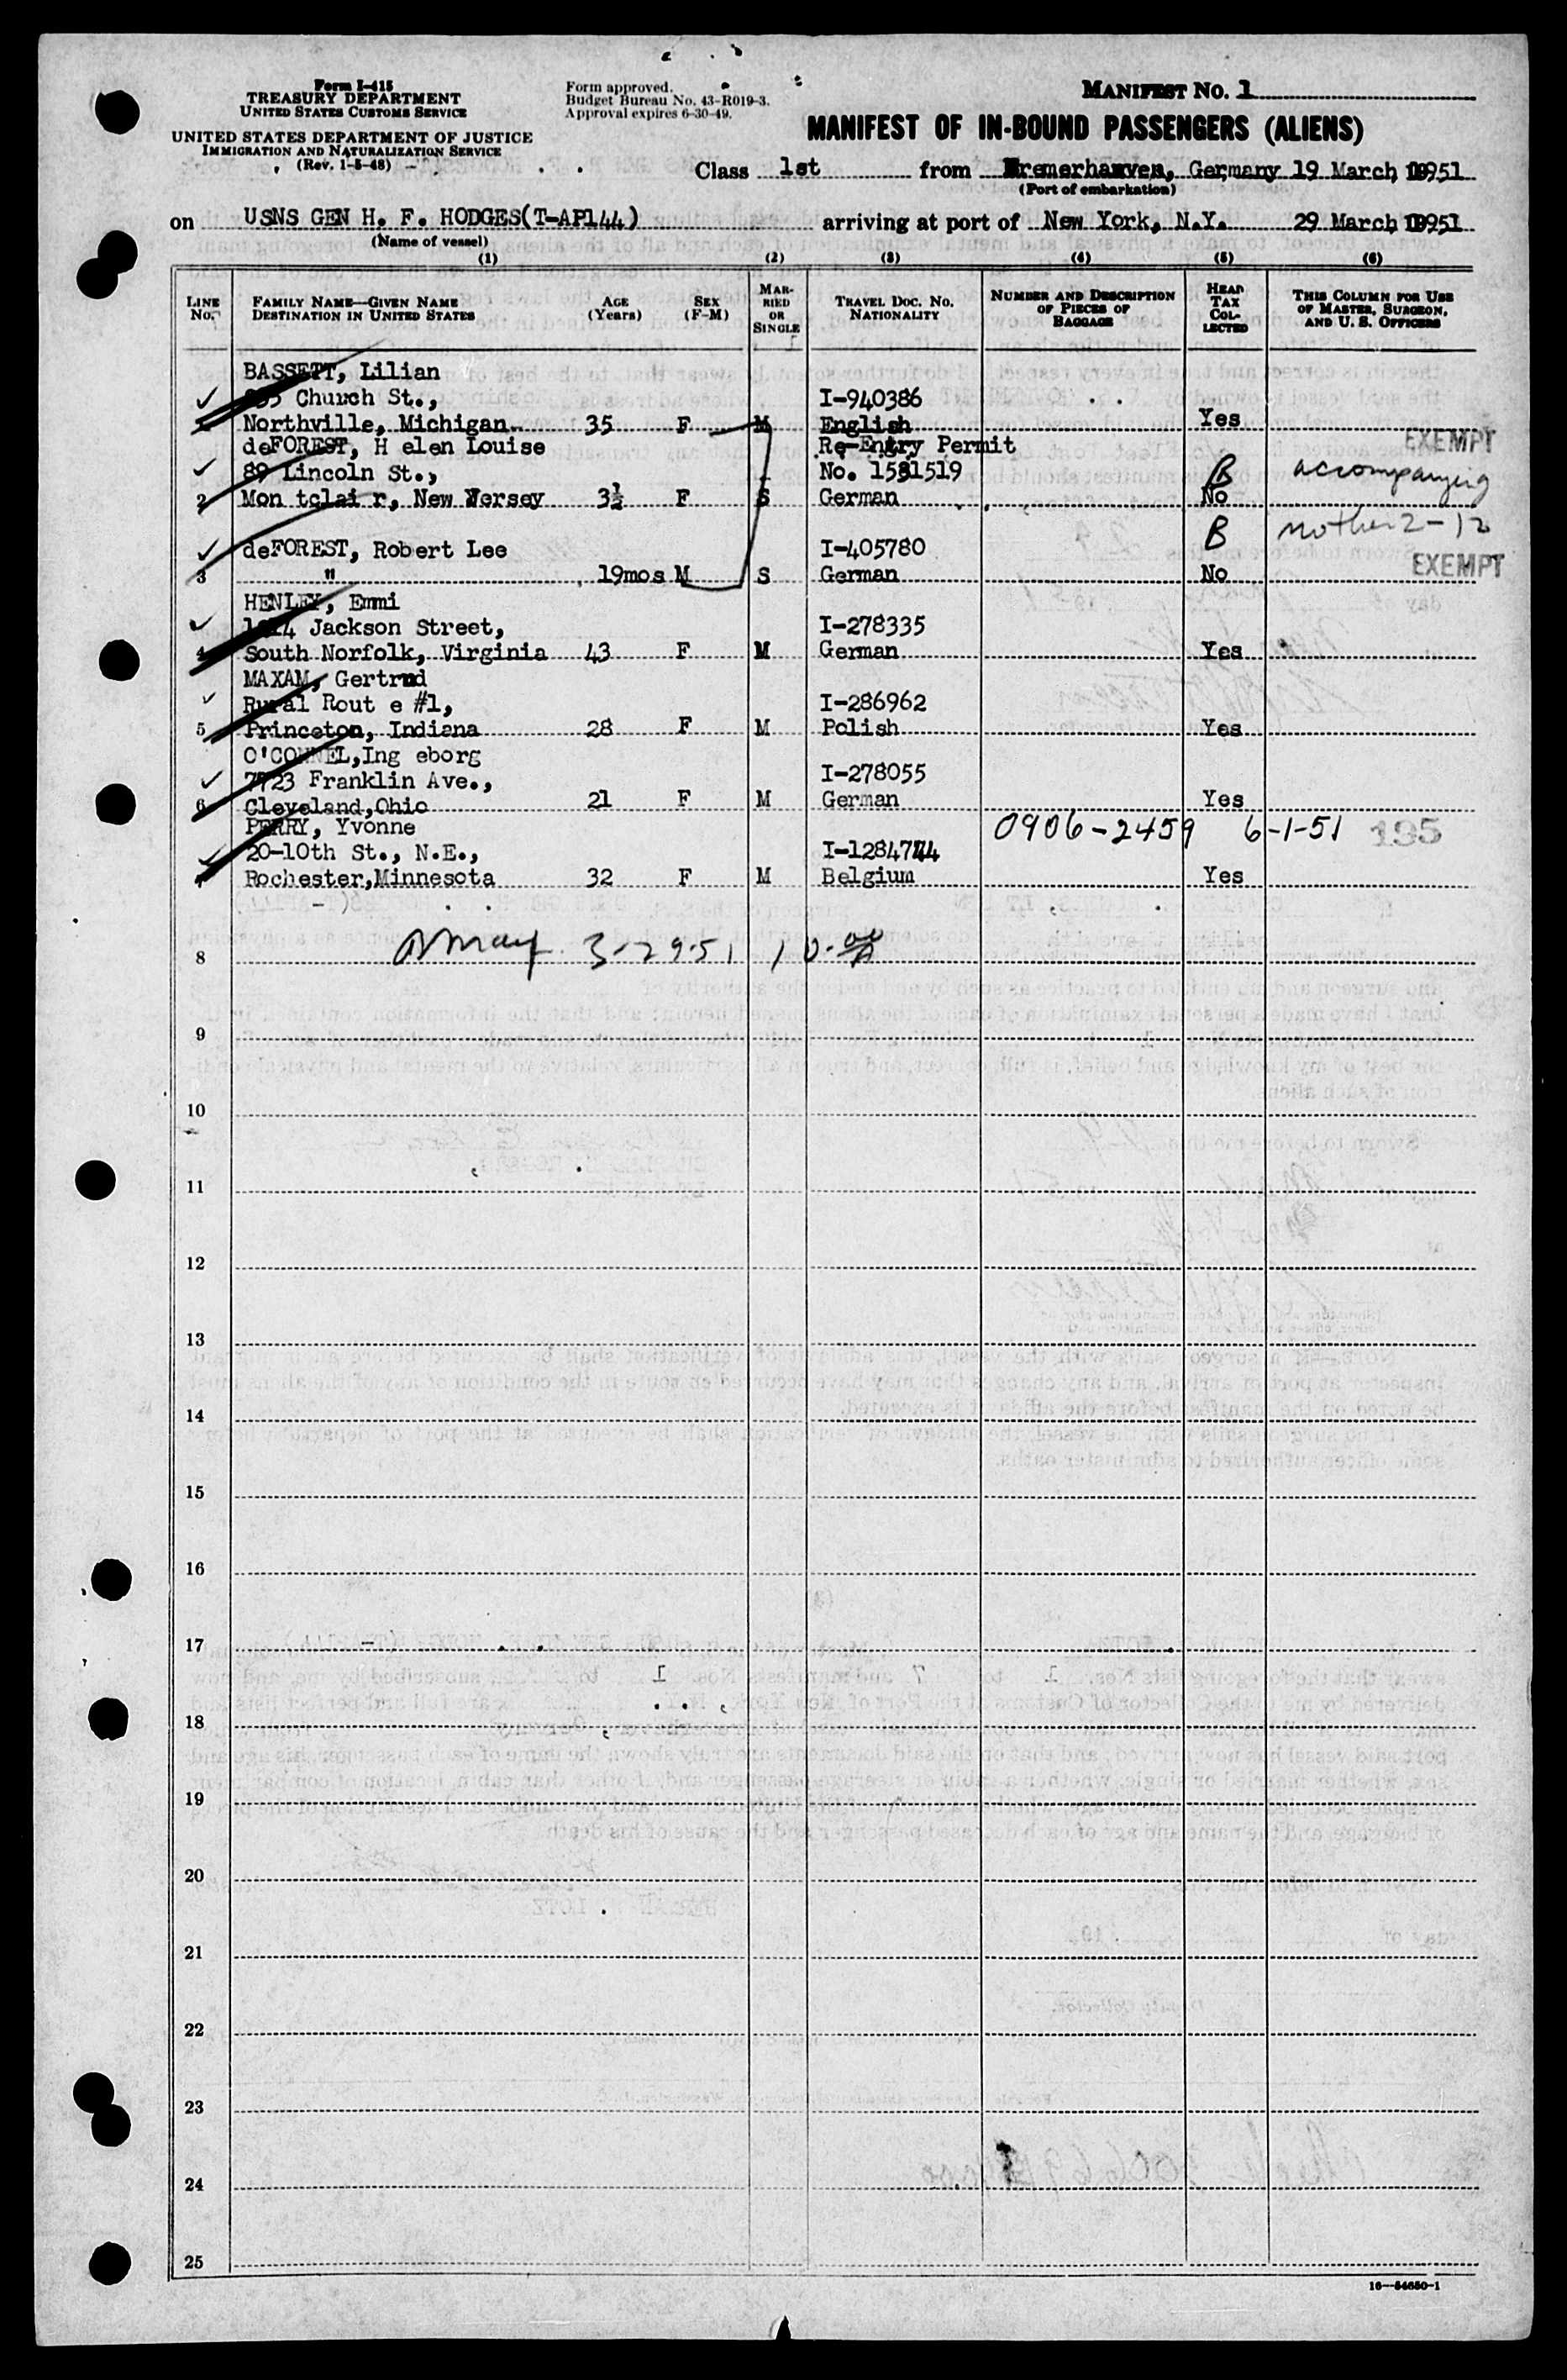 Form I-415
TREASURY DEPARTMENT
UNITED STATES CUSTOMS SERVICE
UNITED STATES DEPARTMENT OF JUSTICE
IMMIGRATION AND NATURALIZATION SERVICE
(Rev. 1-5-48)
Form approved.
Budget Bureau No. 43-R019-3.
Approval expires 6-30-49.
MANIFEST NO. 1
MANIFEST OF IN-BOUND PASSENGERS (ALIENS)
Class 1st from Bremerhaven, Germany 19 March, 1951
(Port of embarkation)
on USNS GEN H. F. HODGES(T-AP144) arriving at port of New York, N.Y. 29 March, 1951
(Name of vessel)
(1) (2) (3) (4) (5) (6)
LINE No. FAMILY NAME—GIVEN NAME DESTINATION IN UNITED STATES AGE (Years) SEX (F-M) MARRIED OR SINGLE TRAVEL DOC. NO. NATIONALITY NUMBER AND DESCRIPTION OF PIECES OF BAGGAGE HEAD TAX COLLECTED THIS COLUMN FOR USE OF MASTER, SURGEON, AND U. S. OFFICERS
BASSETT, Lilian
Church St., I-940386
Northville, Michigan 35 F M English Yes
deFOREST, H elen Louise Re-Entry Permit EXEMPT
89 Lincoln St., No. 1581519 B accompanying
2 Mon tclai r, New Jersey 3½ F S German No
B mother 2-12
deFOREST, Robert Lee I-405780 EXEMPT
3 " 19mos M S German No
HENLEY, Emmi
Jackson Street, I-278335
4 South Norfolk, Virginia 43 F M German Yes
MAXAM, Gertrud
Rural Rout e #1, I-286962
5 Princeton, Indiana 28 F M Polish Yes
O'CONNEL,Ing eborg
7723 Franklin Ave., I-278055
6 Cleveland,Ohio 21 F M German Yes
PERRY, Yvonne 0906-2459 6-1-51 195
20-10th St., N.E., I-1284744
7 Rochester,Minnesota 32 F M Belgium Yes
8 3-29-51 10-
9
10
11
12
13
14
15
16
17
18
19
20
21
22
23
24
25
16—54650-1